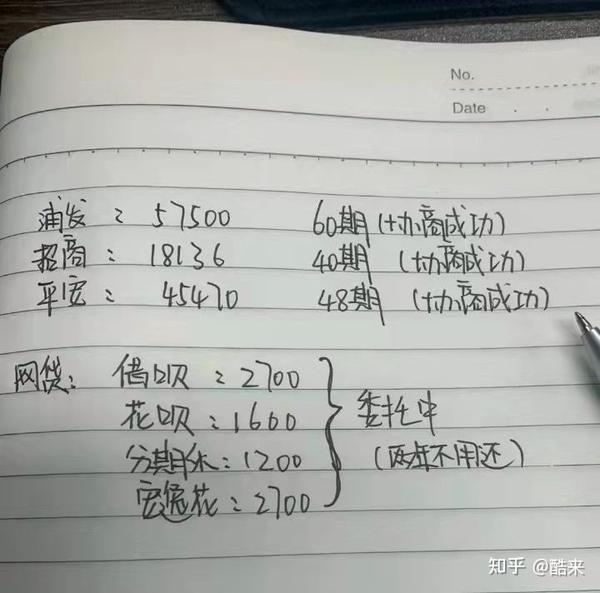 No.
Date . .
浦发: 57500 60期(协商成功)
招商: 18136 40期 (协商成功)
平安: 45470 48期 (协商成功)
网贷: 借呗:2700
花呗:1600
分期乐:1200
安逸花:2700
委托中
(两年不用还)
知乎 @酷来